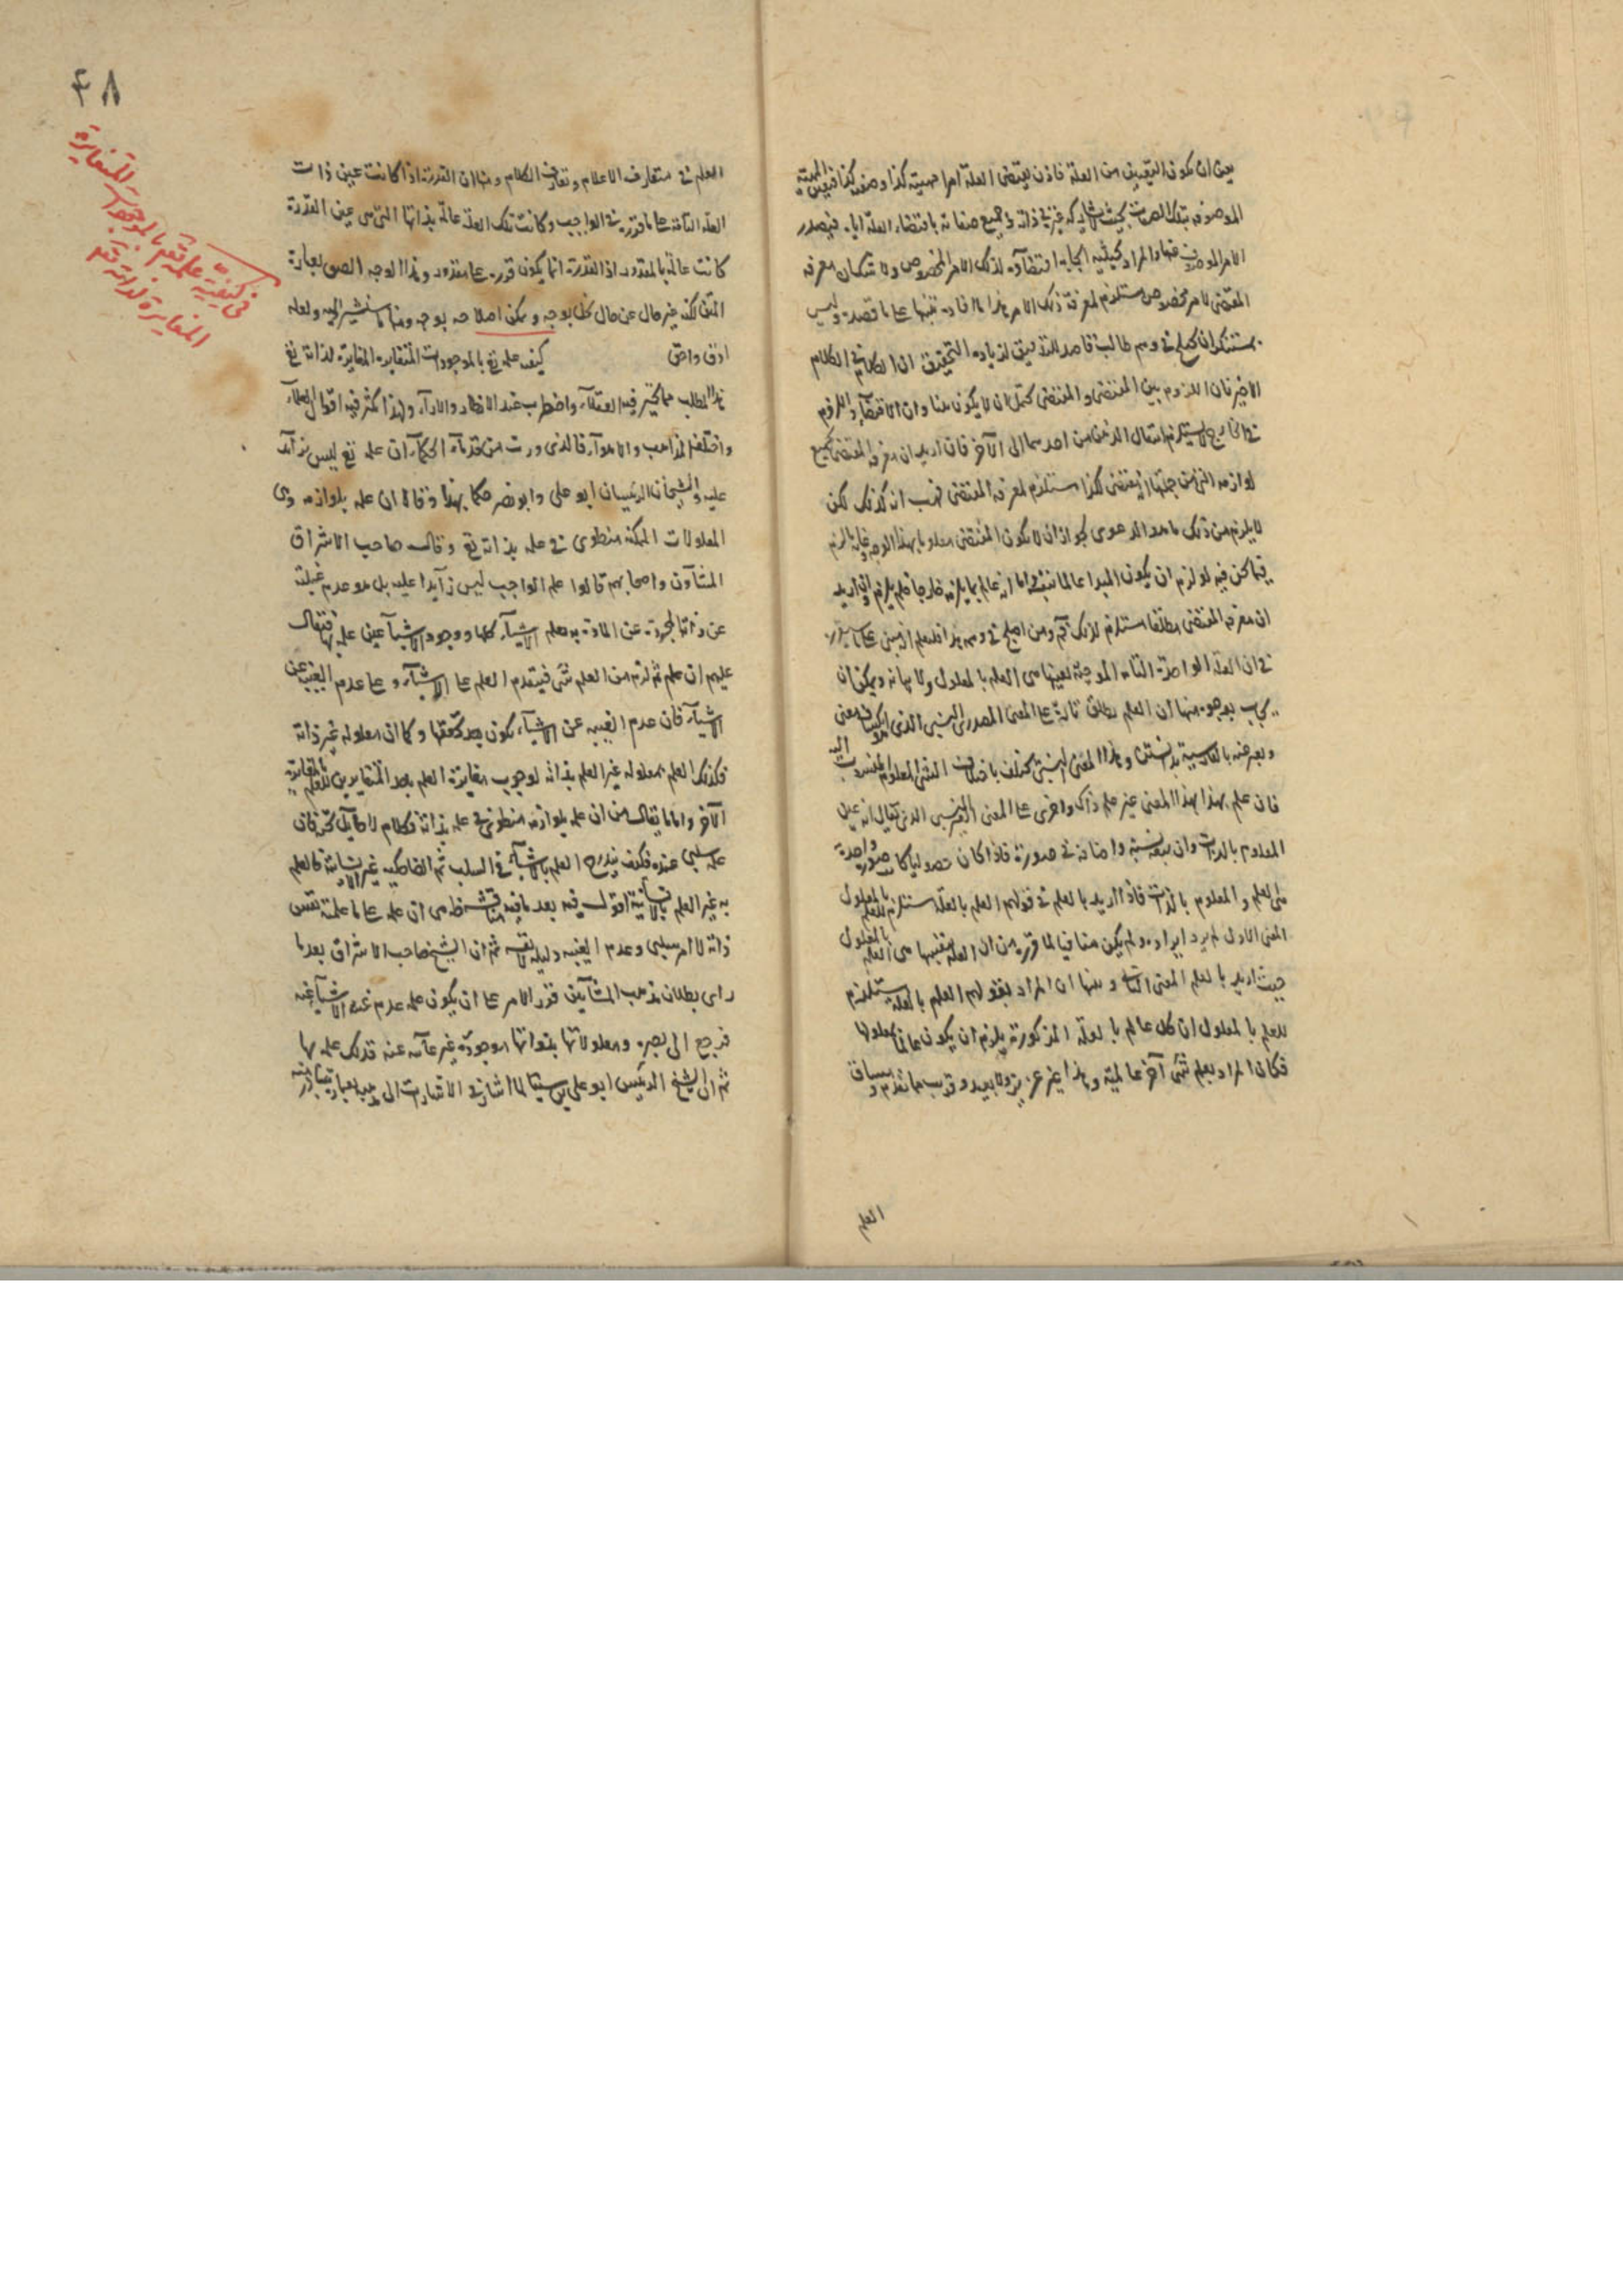 يعنى ان يكون التعيين من العلة فاذن يقتضى العلة امرا مهيته كذا وصفته كذا فيتعين المهية
الموصوفة بتلك الصفات بحيث لا يشاركه غيره فى ذاته وجميع صفاته باقتضاء العلة اياه فيصدر
الامر الموصوف عنها والمراد بحيثية ايجابه اقتضاؤه لذلك الامر المخصوص ولا شك ان معرفة
المقتضى لامر مخصوص مستلزم لمعرفة ذلك الامر هذا ما افاده تنبيها على ما قصده وليس
بمستنكر ان يختلج فى وهم طالب قاصد للتدقيق لزيادة التحقيق ان الكلام فى الكلام
الاخير فان اللزوم بين المقتضى والمقتضى يحتمل ان لا يكون بينا وان الاقتضاء واللزوم
فى الخارج لا يستلزم انتقال الذهن من احدهما الى الآخر فان اريد ان معرفة المقتضى بجميع
لوازمه التى من جملتها انه يقتضى كذا مستلزم لمعرفة المقتضى فهب انه كذلك لكن
لا يلزم من ذلك ما هو الدعوى لجواز ان لا يكون المقتضى معلوما بهذا الوجه وغاية ما لزم
فيما نحن فيه لو لزم ان يكون المبدا عالما بنفسه واما انه عالم بما يلزمه خارجا فلم يلزم وان اريد
ان معرفة المقتضى مطلقا مستلزم لذلك فمم ومن اختلج فى وهمه هذا فلعلم انه مبنى على ما سيقرر
فى ان العلة الواحدة التامة الموجبة بعينها هى العلم بالمعلول ولا بيانه ويمكن ان
يجاب بوجوه منها ان العلم يطلق تارة على المعنى المصدرى النسبى الذى هو
ويعبر عنه بالفارسية بدانستن وهذا المعنى النسبى يختلف باختلاف الشئ المعلوم المنسوب اليه
فان علم بهذا بهذا المعنى غير علم ذاك واخرى على المعنى الغير النسبى الذى يقال انه عين
المعلوم بالذات وان تبعه نسبة واضافة فى صورة فاذا كان حصوليا كان صورة واحدة
هى العلم والمعلوم بالذات فاذا اريد بالعلم فى قولهم العلم بالعلة مستلزم للعلم بالمعلول
المعنى الاول لم يرد ايراده ولم يكن منافيا لما قرره من ان العلة بعينها هى العلم بالمعلول
حيث اريد بالعلم المعنى الثانى ومنها ان المراد بقولهم العلم بالعلة يستلزم
للعلم بالمعلول ان كل عالم بالعلة المذكورة يلزم ان يكون عالما بمعلولها
فكان المراد بعلم شئ آخر عالميته وهذا غير عزيز ولا بعيد وقريب مما تقدم وسياق
العلم
٤٨
فى كيفية علمه تع بالموجودات المتغايرة
المغايرة لذاته تع
العلم فى متعارف الاعلام وتعارف الكلام ومنها ان القدرة اذا كانت عين ذات
العلة التامة على ما قرره فى الواجب وكانت تلك العلة عالمة بذاتها التى هى عين القدرة
كانت عالمة بالمقدور اذ القدرة انما يكون قدرة على مقدور وهذا الوجه الصق بعبارة
المتن لكنه غير خال عن خلل بوجه ويمكن اصلاحه بوجه ومنها ما سنشير اليه ولعله
ادق واحق كيفية علمه تع بالموجودات المتغايرة المغايرة لذاته تع
هذا المطلب مما تحير فيه العقلاء واضطرب عنده الانظار والاراء ولهذا كثر فيه اقوال العلماء
واختلف المذاهب والاهواء فالذى ورث من قدماء الحكماء ان علمه تع ليس بزائد
عليه والشيخان الرئيسان ابو على وابو نصر حكما بهذا وقالا ان علمه بلوازمه وهى
المعلولات الممكنة منطوى فى علمه بذاته تع وقال صاحب الاشراق
المشاؤن واصحابهم قالوا علم الواجب ليس زايدا عليه بل هو عدم غيبته
عن ذاته المجردة عن المادة وبعلم الاشياء كلها ووجود الاشياء عين علمه بها فيقال
عليهم ان علم ثم لزم من العلم شئ فيتقدم العلم على الاشياء وعلى عدم الغيبة عن
الاشياء فان عدم الغيبة عن الاشياء يكون بعد تحققها وكما ان معلوله غير ذاته
فكذلك العلم بمعلوله غير العلم بذاته لوجوب مغايرة العلم باحد المتغايرين للعلم بالمغاير
الآخر واما ما يقال من ان علمه بلوازمه منطوى فى علمه بذاته فكلام لا طايل تحته فان
علمه سلبى عنده فكيف يندرج العلم بالاشياء فى السلب ثم الضاحكية غير الانسانية فالعلم
به غير العلم بالانسانية اقول فيه بعد ما فيه مناقشة ظاهرة هى ان علمه على ما علمته نفس
ذاته لا امر سلبى وعدم الغيبة دليله لا نفسه ثم ان الشيخ صاحب الاشراق بعد ما
راى بطلان مذهب المشائين قرر الامر على ان يكون علمه عدم غيبة الاشياء عنه
فرجع الى بصره ومعلولاتها بذواتها موجودة غير غائبة عنه فذلك علمه بها
ثم ان الشيخ الرئيس ابو على بن سينا لما اشار فى الاشارات الى